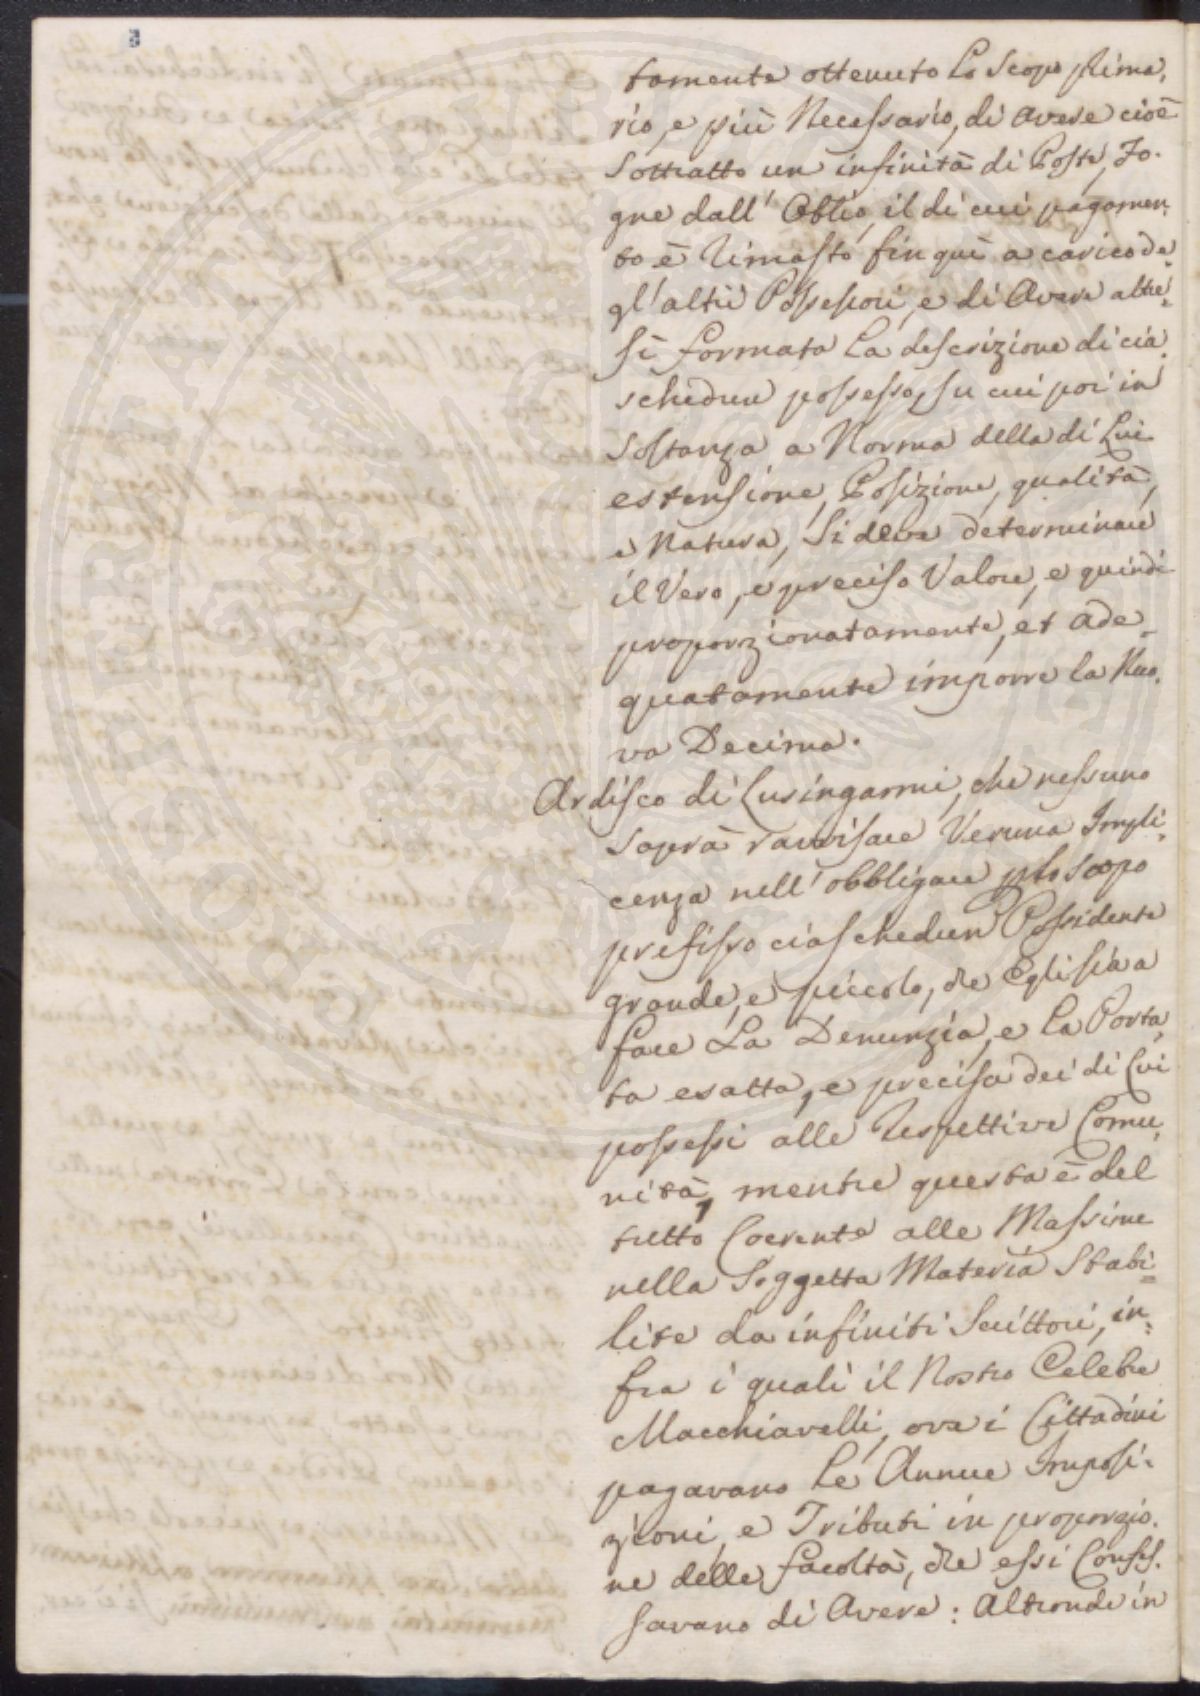 tamente ottenuto Lo Scopo Prima,
rio, e più Necessario, di avere cioè
Sottratto un infinità di Poste, Fo.
gne dall' Oblio, il di cui pagamen,
to è Rimasto fin quì a carico de,
gl' altri Possessori, e di Avere altre,
sì formata La descrizione di cia,
schedun possesso, su cui poi in
Sostanza a Norma della di Lui
estensione, Posizione, qualità,
e Natura, Si deve determinare
il Vero, e preciso Valore, e quindi
proporzionatamente, et ade=
quatamente imporre la Nuo,
va Decima.
Ardisco di Lusingarmi, che nessuno
Saprà ravvisare Veruna Impli=
cenza nell' obbligare p lo scopo
prefisso ciaschedun Possidente
grande, e piccolo, che Egli sia a
fare La Denunzia, e la Porta,
ta esatta, e precisa dei di Lui
possessi alle Respettive Comu,
nità, mentre questa è del
tutto Coerente alle Massime
nella Soggetta Materia Stabi=
lite da infiniti Scrittori, in=
fra i quali il Nostro Celebre
Macchiavelli, ove i Cittadini
pagavano Le Annue Imposi=
zioni, e Tributi in proporzio.
ne delle facoltà, che essi Confes.
savano di Avere: Altronde in
PROSPERITATI PUBLICAE